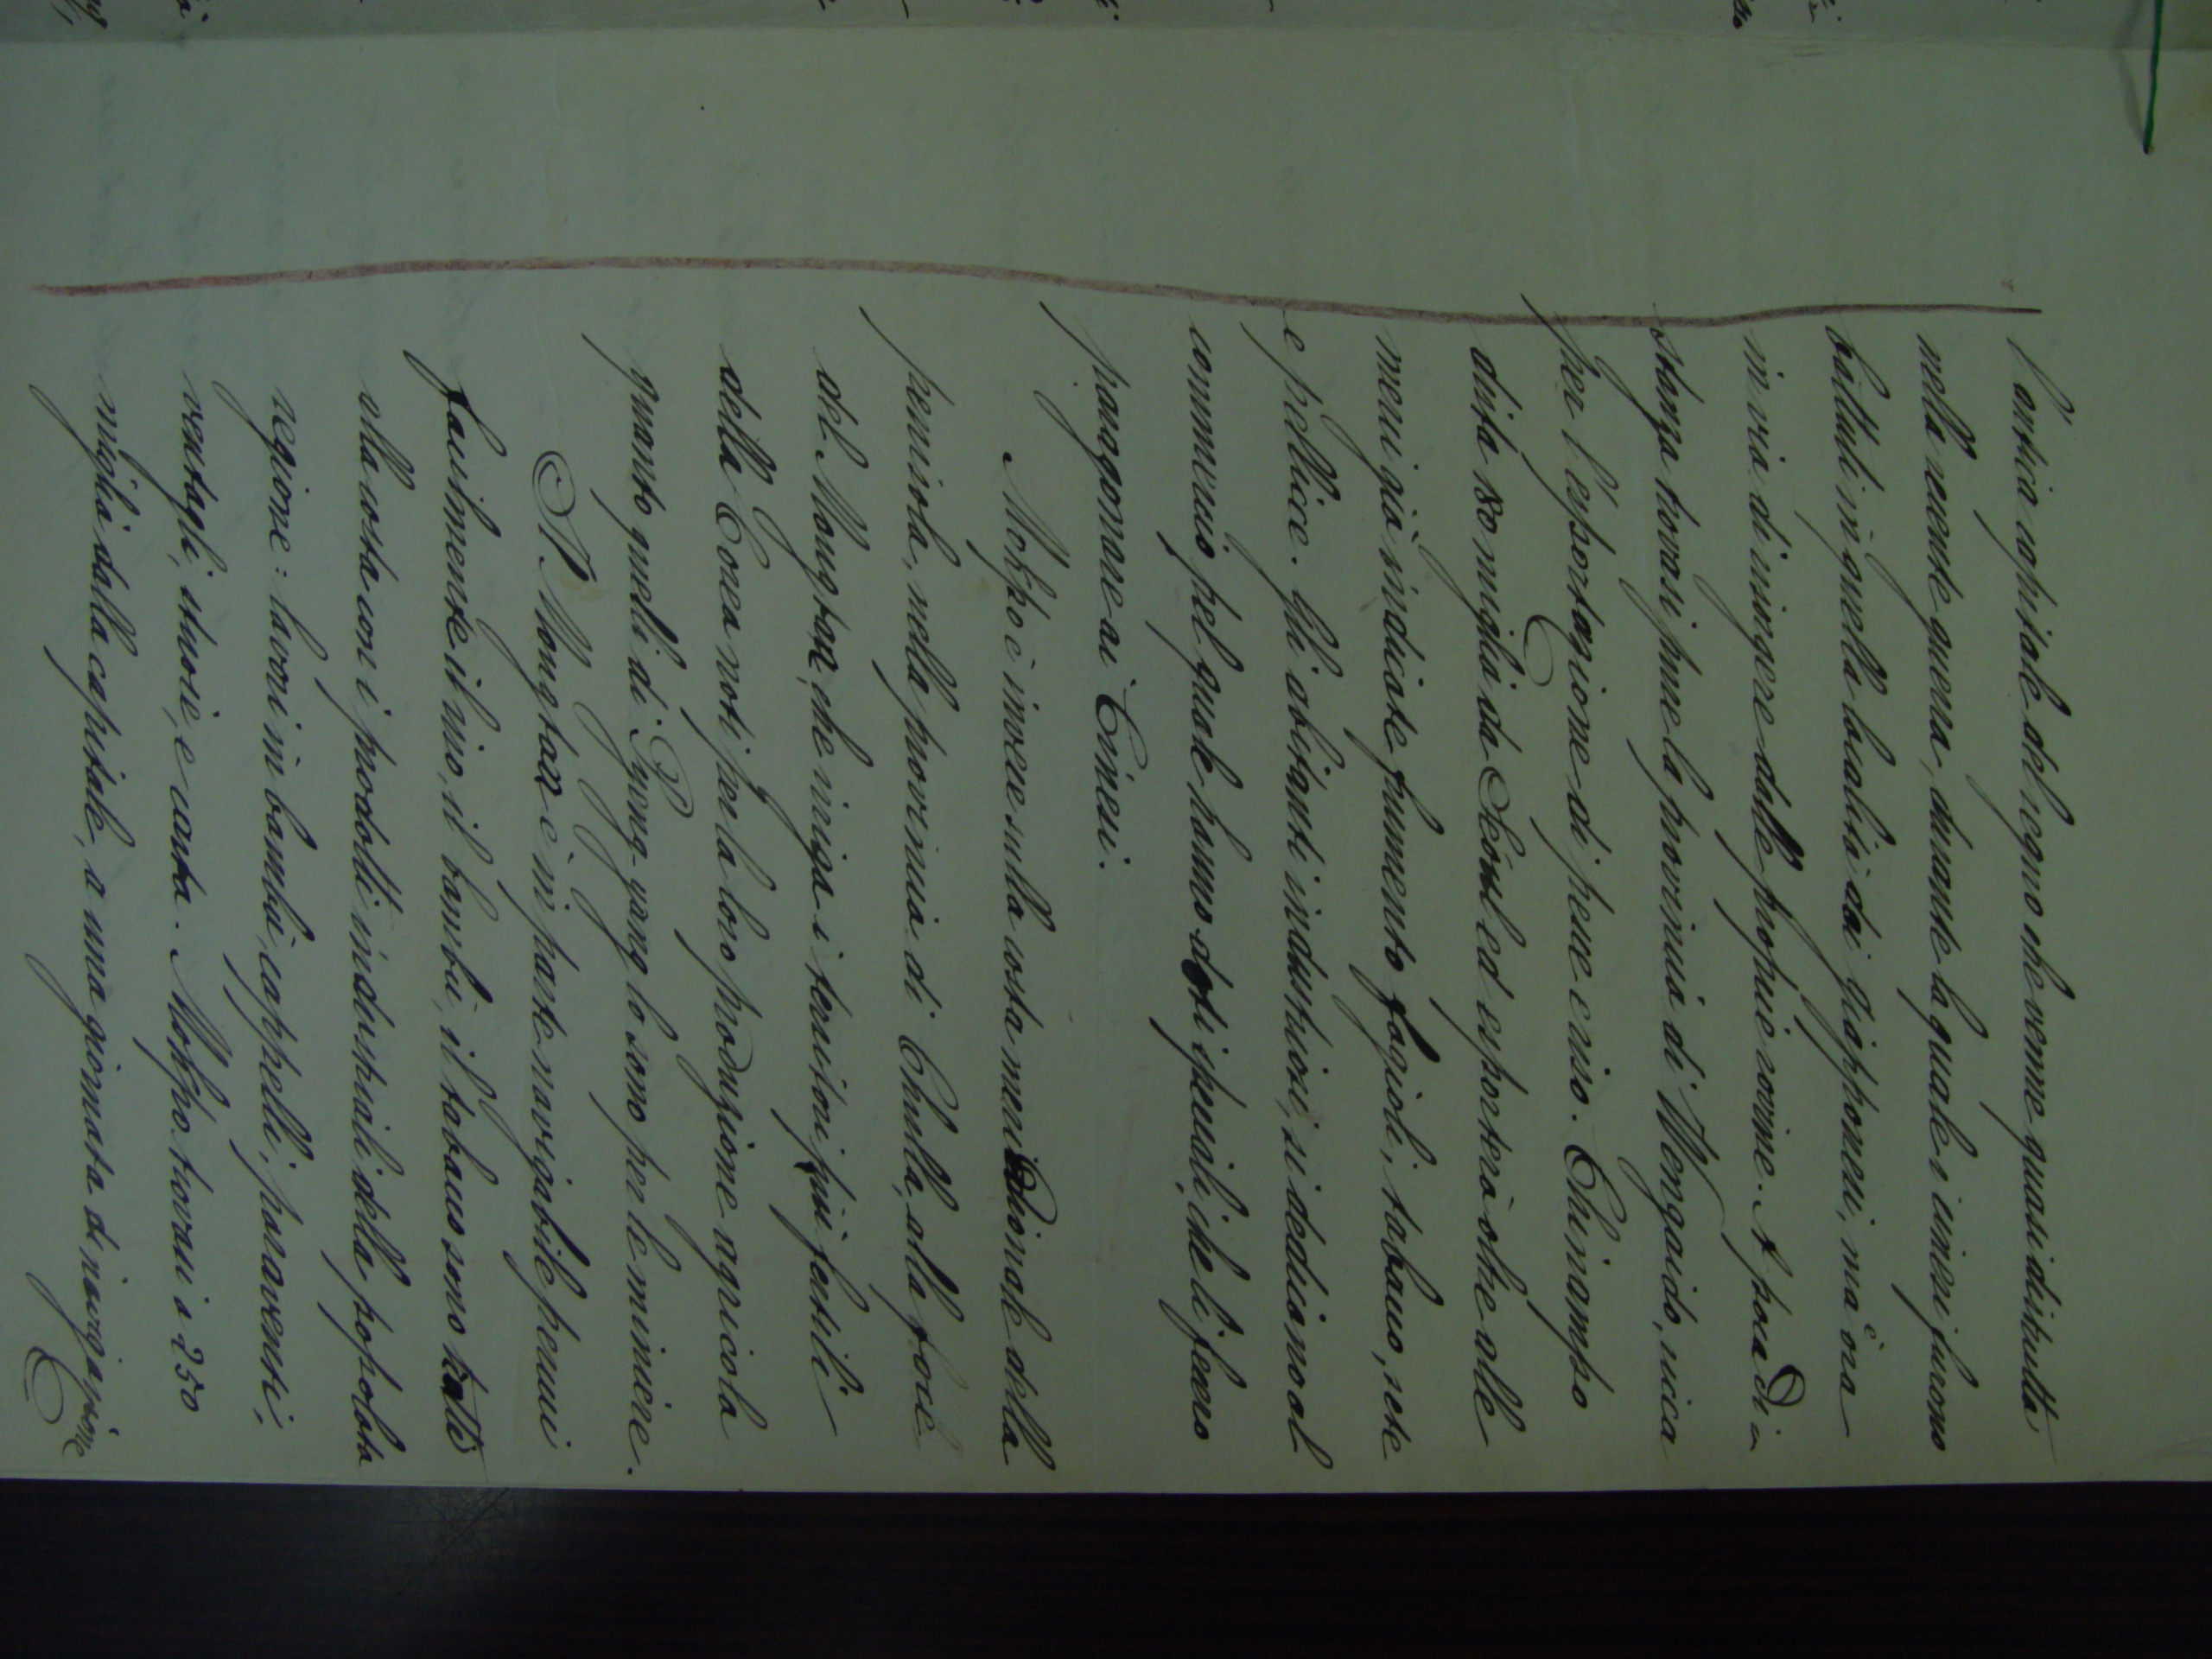 l'antica capitale del regno che venne quasi distrutta
nella recente guerra, durante la quale i cinesi furono
battuti in quella località dai giapponesi, ma è ora
in via di risorgere dalle proprie rovine. A poca di
stanza trovasi pure la provincia di Wongaido, ricca
per l'esportazione di pesce e riso. Chinampo
dista 180 miglia da Séoul ed esporterà oltre alle
merci già indicate frumento fagioli, tabacco, sete
e pellicce. Gli abitanti industriosi, si dedicano al
commercio pel quale hanno doti speciali, che li fecero
paragonare ai Cinesi.
Mokpo è invece sulla costa meridionale della
penisola, nella provincia di Chulla, alla foce
del Mongtan, che irriga i territori più fertili
della Corea noti per la loro produzione agricola
quanto quelli di Pyeng-yang lo sono per le miniere.
Il Mongtan è in parte navigabile perciò
facilmente il riso, il bambù, il tabacco sono tratti
alla costa con i prodotti industriali della popolata
regione: lavori in bambù, cappelli, paraventi,
ventagli, stuoie, e carta. Mokpo trovasi a 250
miglia dalla capitale, a una giornata di navigazione